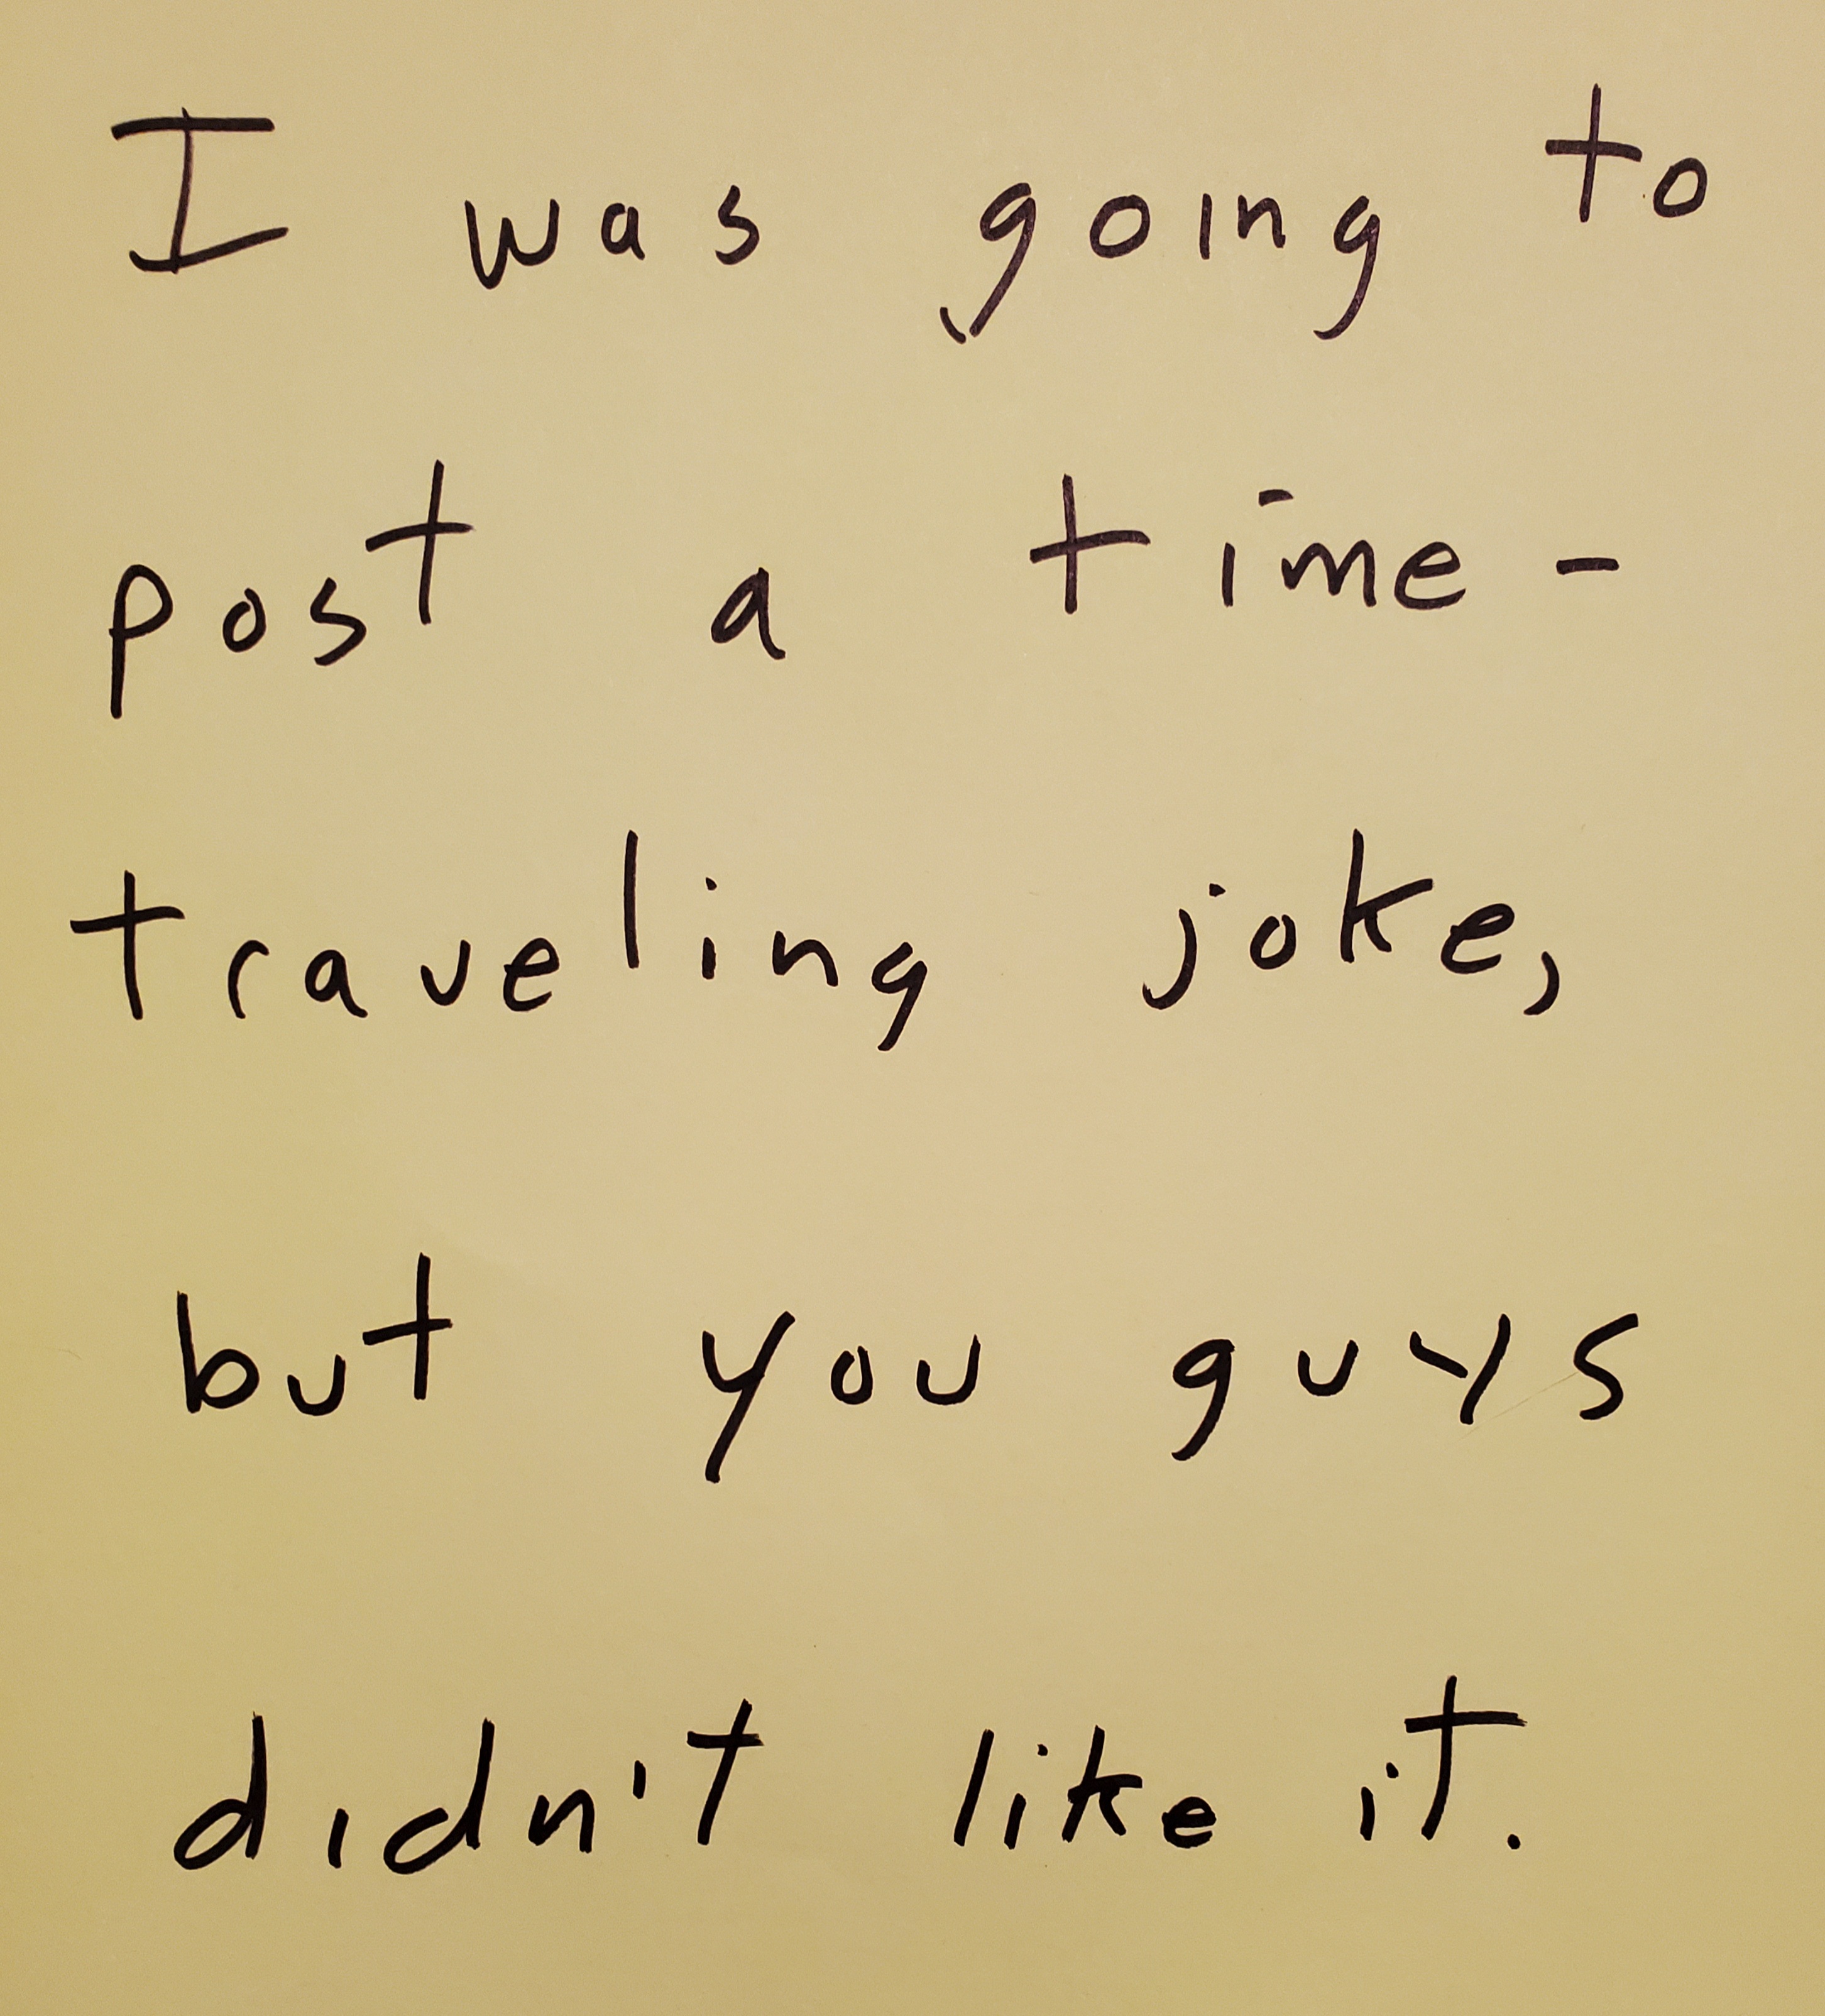 I was going to
post a time-
traveling joke,
but you guys
didn't like it.